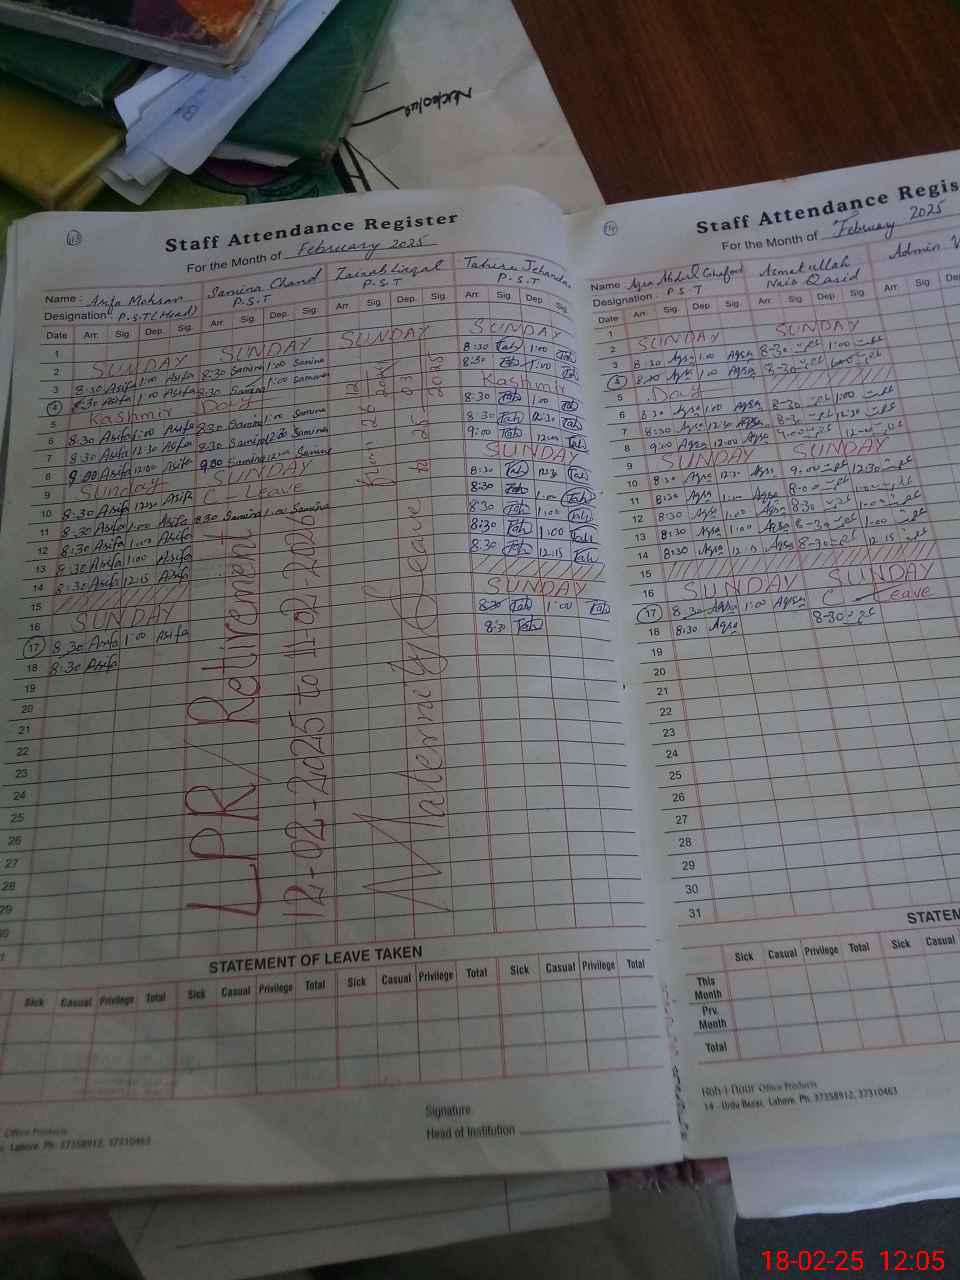 113
Staff Attendance Register
For the Month of February 2025
Name : Asifa Mohsan Samina Chand Zainab Liaqat Tahira Jehandad
Designation : P.S.T (Head) P.S.T P.S.T P.S.T
Date Arr. Sig. Dep. Sig. Arr. Sig. Dep. Sig. Arr. Sig. Dep. Sig. Arr. Sig. Dep. Sig.
1
2 SUNDAY SUNDAY SUNDAY SUNDAY
3 8:30 Asifa 1:00 Asifa 8:30 Samina 1:00 Samina 8:30 Tah 1:00 Tah
4 8:30 Asifa 1:00 Asifa 8:30 Samina 1:00 Samina 8:30 Tah 1:00 Tah
5 Kashmir Day Kashmir
6 8:30 Asifa 1:00 Asifa 8:30 Samina 1:00 Samina 8:30 Tah 1:00 Tah
7 8:30 Asifa 12:30 Asifa 8:30 Samina 12:30 Samina 8:30 Tah 12:30 Tah
8 9:00 Asifa 12:00 Asifa 9:00 Samina 12:00 Samina 9:00 Tah 12:00 Tah
9 Sunday SUNDAY SUNDAY
10 8:30 Asifa 12:30 Asifa C - Leave 8:30 Tah 12:30 Tah
11 8:30 Asifa 1:00 Asifa 8:30 Samina 1:00 Samina 8:30 Tah 1:00 Tah
12 8:30 Asifa 1:00 Asifa 8:30 Tah 1:00 Tah
13 8:30 Asifa 1:00 Asifa 8:30 Tah 1:00 Tah
14 8:30 Asifa 12:15 Asifa 8:30 Tah 12:15 Tah
15
16 SUNDAY SUNDAY
17 8:30 Asifa 1:00 Asifa 8:30 Tah 1:00 Tah
18 8:30 Asifa 8:30 Tah
19
20
21
22
23
24
25
26
27
28
29
30
LPR / Retirement
12-02-2025 to 11-02-2026
Maternity Leave
STATEMENT OF LEAVE TAKEN
Sick Casual Privilege Total Sick Casual Privilege Total Sick Casual Privilege Total Sick Casual Privilege Total
Signature
Head of Institution
Office Products
Lahore. Ph: 37358912, 37310463
114
Staff Attendance Regis
For the Month of February 2025
Name : Aqsa Abdul Ghafoor Azmatullah Admin
Designation : P.S.T Naib Qasid
Date Arr. Sig. Dep. Sig. Arr. Sig. Dep. Sig. Arr. Sig.
1
2 SUNDAY SUNDAY
3 8:30 Aqsa 1:00 Aqsa 8-30 1:00
4 8:30 Aqsa 1:00 Aqsa 8-30
5 Day
6 8:30 Aqsa 1:00 Aqsa 8-30 1:00
7 8:30 Aqsa 12:30 Aqsa 8-30 12-30
8 9:00 Aqsa 12:00 Aqsa 9-00 12-00
9 SUNDAY SUNDAY
10 8:30 Aqsa 12:30 Aqsa 9-00 12:30
11 8:30 Aqsa 1:00 Aqsa 8-00 1-00
12 8:30 Aqsa 1:00 Aqsa 8:30 1-00
13 8:30 Aqsa 1:00 Aqsa 8-30 1-00
14 8:30 Aqsa 12:15 Aqsa 8-30 12,15
15
16 SUNDAY SUNDAY
17 8:30 Aqsa 1:00 Aqsa C - Leave
18 8:30 Aqsa 8-30
19
20
21
22
23
24
25
26
27
28
29
30
31
STATEM
Sick Casual Privilege Total Sick Casual
This Month
Prv. Month
Total
Roh-i-Nour Office Products
14 - Urdu Bazar, Lahore. Ph: 37358912, 37310463
18-02-25 12:05